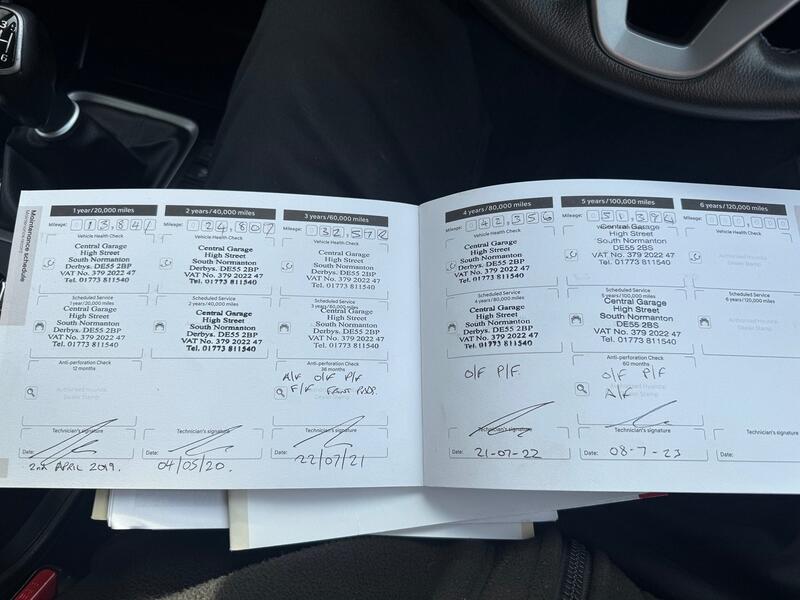 3
6
Maintenance schedule
1 year/20,000 miles
Mileage: 013,841
Vehicle Health Check
Central Garage
High Street
South Normanton
Derbys. DE55 2BP
VAT No. 379 2022 47
Tel. 01773 811540
Scheduled Service
1 year/20,000 miles
Central Garage
High Street
South Normanton
Derbys. DE55 2BP
VAT No. 379 2022 47
Tel. 01773 811540
Anti-perforation Check
12 months
Authorised Hyundai
Dealer Stamp
Technician's signature
Date:
2nd APRIL 2019.
2 years/40,000 miles
Mileage: 024,807
Vehicle Health Check
Central Garage
High Street
South Normanton
Derbys. DE55 2BP
VAT No. 379 2022 47
Tel. 01773 811540
Scheduled Service
2 years/40,000 miles
Central Garage
High Street
South Normanton
Derbys. DE55 2BP
VAT No. 379 2022 47
Tel. 01773 811540
Technician's signature
Date:
04/05/20.
3 years/60,000 miles
Mileage: 032,572
Vehicle Health Check
Central Garage
High Street
South Normanton
Derbys. DE55 2BP
VAT No. 379 2022 47
Tel. 01773 811540
Scheduled Service
3 years/60,000 miles
Central Garage
High Street
South Normanton
Derbys. DE55 2BP
VAT No. 379 2022 47
Tel. 01773 811540
Anti-perforation Check
36 months
A/F O/F P/F
F/F FRONT PADS.
Technician's signature
Date:
22/07/21
4 years/80,000 miles
Mileage: 042,356
Vehicle Health Check
Central Garage
High Street
South Normanton
Derbys. DE55 2BP
VAT No. 379 2022 47
Tel. 01773 811540
Scheduled Service
4 years/80,000 miles
Central Garage
High Street
South Normanton
Derbys. DE55 2BP
VAT No. 379 2022 47
Tel. 01773 811540
O/F P/F.
Technician's signature
Date:
21-07-22
5 years/100,000 miles
Mileage: 051,384
Central Garage
High Street
South Normanton
DE55 2BS
VAT No. 379 2022 47
Tel. 01773 811540
Scheduled Service
5 years/100,000 miles
Central Garage
High Street
South Normanton
DE55 2BS
VAT No. 379 2022 47
Tel. 01773 811540
Anti-perforation Check
60 months
O/F P/F
A/F
Technician's signature
Date:
08-7-23
6 years/120,000 miles
Mileage:
Vehicle Health Check
Authorised Hyundai
Dealer Stamp
Scheduled Service
6 years/120,000 miles
Technician's signature
Date: